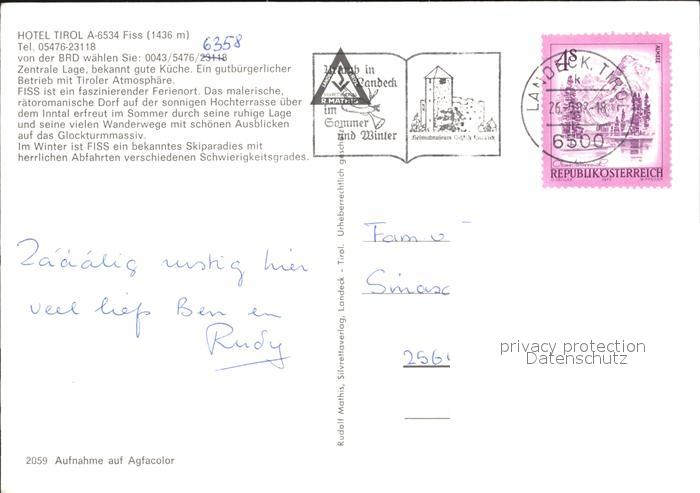 HOTEL TIROL A-6534 Fiss (1436 m)
Tel. 05476-23118
6358
von der BRD wählen Sie: 0043/5476/23118
Zentrale Lage, bekannt gute Küche. Ein gutbürgerlicher
Betrieb mit Tiroler Atmosphäre.
FISS ist ein faszinierender Ferienort. Das malerische,
rätoromanische Dorf auf der sonnigen Hochterrasse über
dem Inntal erfreut im Sommer durch seine ruhige Lage
und seine vielen Wanderwege mit schönen Ausblicken
auf das Glockturmmassiv.
Im Winter ist FISS ein bekanntes Skiparadies mit
herrlichen Abfahrten verschiedenen Schwierigkeitsgrades.
Zááálig rustig hier
veel liefs Ben en
Rudy
2059 Aufnahme auf Agfacolor
Rudolf Mathis, Silvrettaverlag, Landeck - Tirol. Urheberrechtlich gesch
Urlaub in
Landeck
R. MATHIS
im
Sommer
und Winter
LANDECK, TIROL
k
6500
4 S
ALMSEE
REPUBLIK ÖSTERREICH
Fam
Smasc
256
privacy protection
Datenschutz